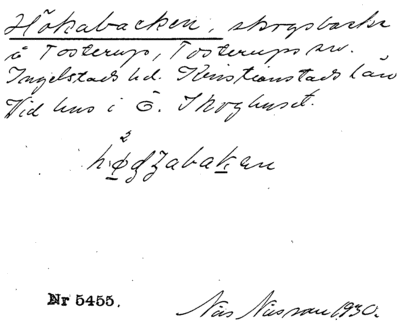 Hökabacken. skogsbacke
å Tosterup, Tosterups sn.
Ingelstads hd. Kristianstads län
Vid hus i Ö. Skoghuset.
Nr 5455.
Nils Nilsson 1930.